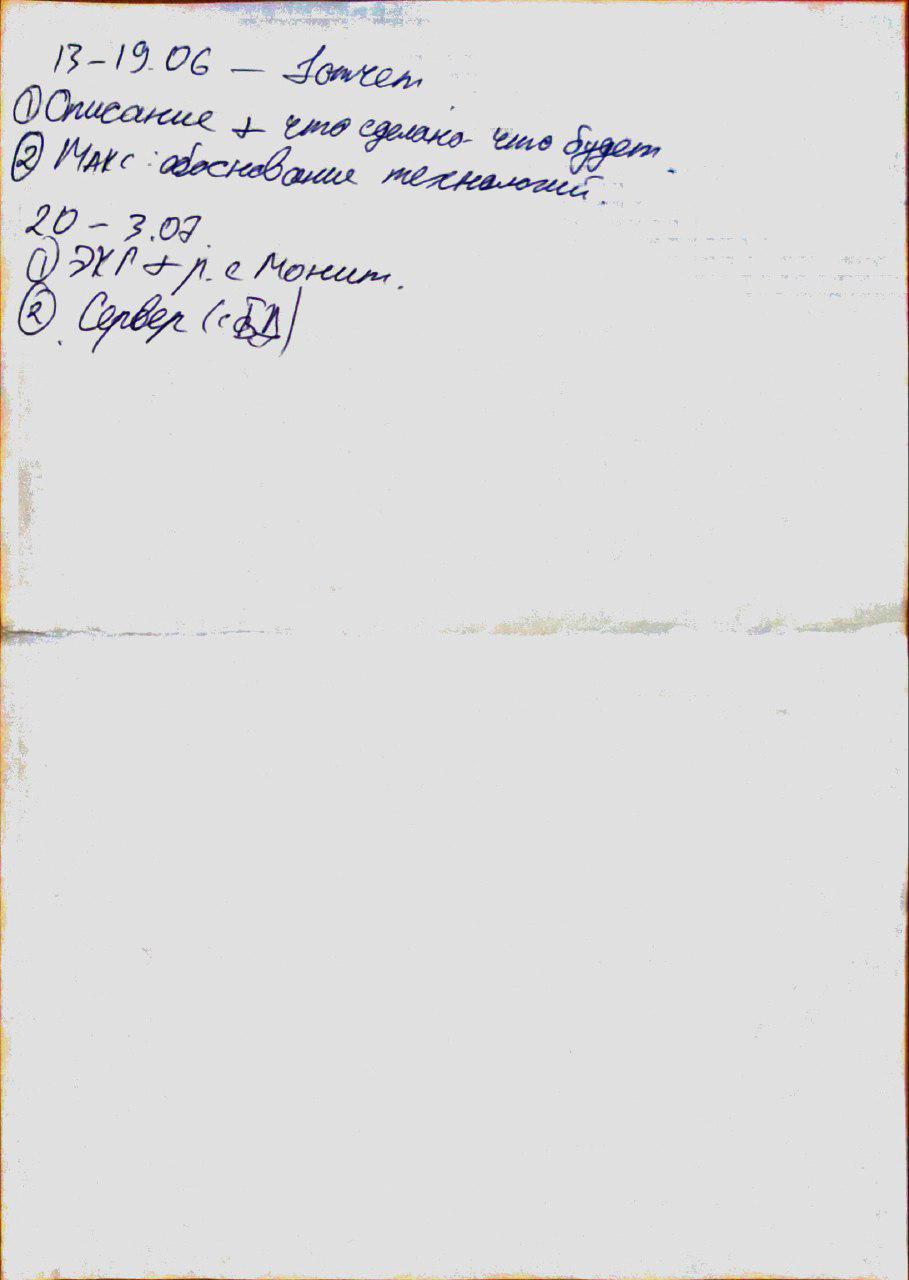 13-19.06 — 1 отчет
① Описание + что сделано что будет.
② Макс: обоснование технологий.
20 - 3.07.
① ЭКГ + р. с Монит.
② Сервер (с БД)